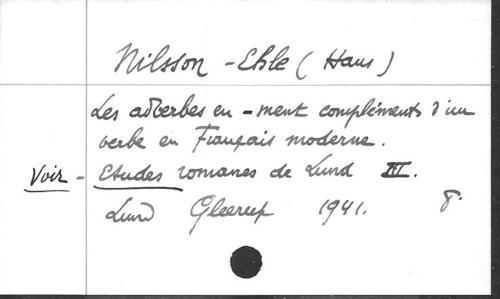 Nilsson-Ehle (Hans)
Les adverbes en -ment compléments d'un
verbe en Français moderne.
Voir - Etudes romanes de Lund III.
Lund Gleerup 1941. 8.